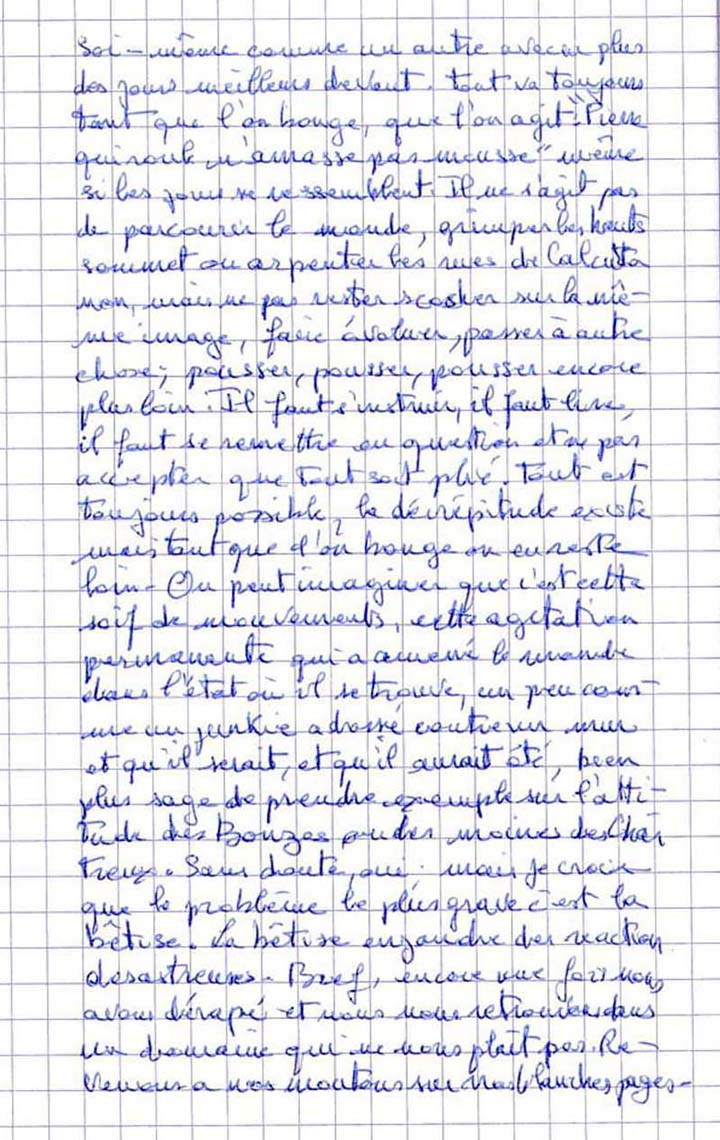 Soi-même comme un autre avec en plus
des jours meilleurs devant. Tout va toujours
tant que l'on bouge, que l'on agit. "Pierre
qui roule n'amasse pas mousse" même
si les jours se ressemblent. Il ne s'agit pas
de parcourir le monde, grimper les hauts
sommet ou arpenter les rues de Calcutta
non, mais ne pas rester scotcher sur la mê-
me image, faire évoluer, passer à autre
chose; pousser, pousser, pousser encore
plus loin. Il faut s'instruire, il faut lire,
il faut se remettre en question et ne pas
accepter que tout soit plié. Tout est
toujours possible, la décrépitude existe
mais tant que l'on bouge on en reste
loin - On peut imaginer que c'est cette
soif de mouvements, cette agitation
permanente qui a amené le monde
dans l'état où il se trouve, un peu com-
me un junkie adossé contre un mur
et qu'il serait, et qu'il aurait été, bien
plus sage de prendre exemple sur l'atti-
tude des Bonzes ou des moines des Char
treux. Sans doute, oui; mais je crois
que le problème le plus grave c'est la
bêtise. La bêtise engendre des reaction
desastreuses - Bref, encore une fois nous
avons dérapé et nous nous retrouvons dans
un domaine qui ne nous plaît pas. Re-
venons a nos moutons sur nos blanches pages -